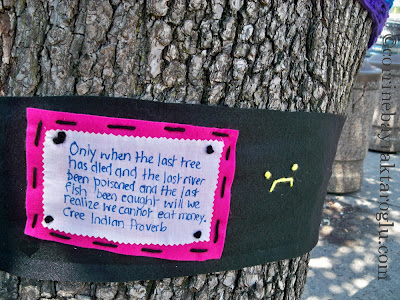 Only when the last tree
has died and the last river
been poisoned and the last
fish been caught will we
realize we cannot eat money.
Cree Indian Proverb